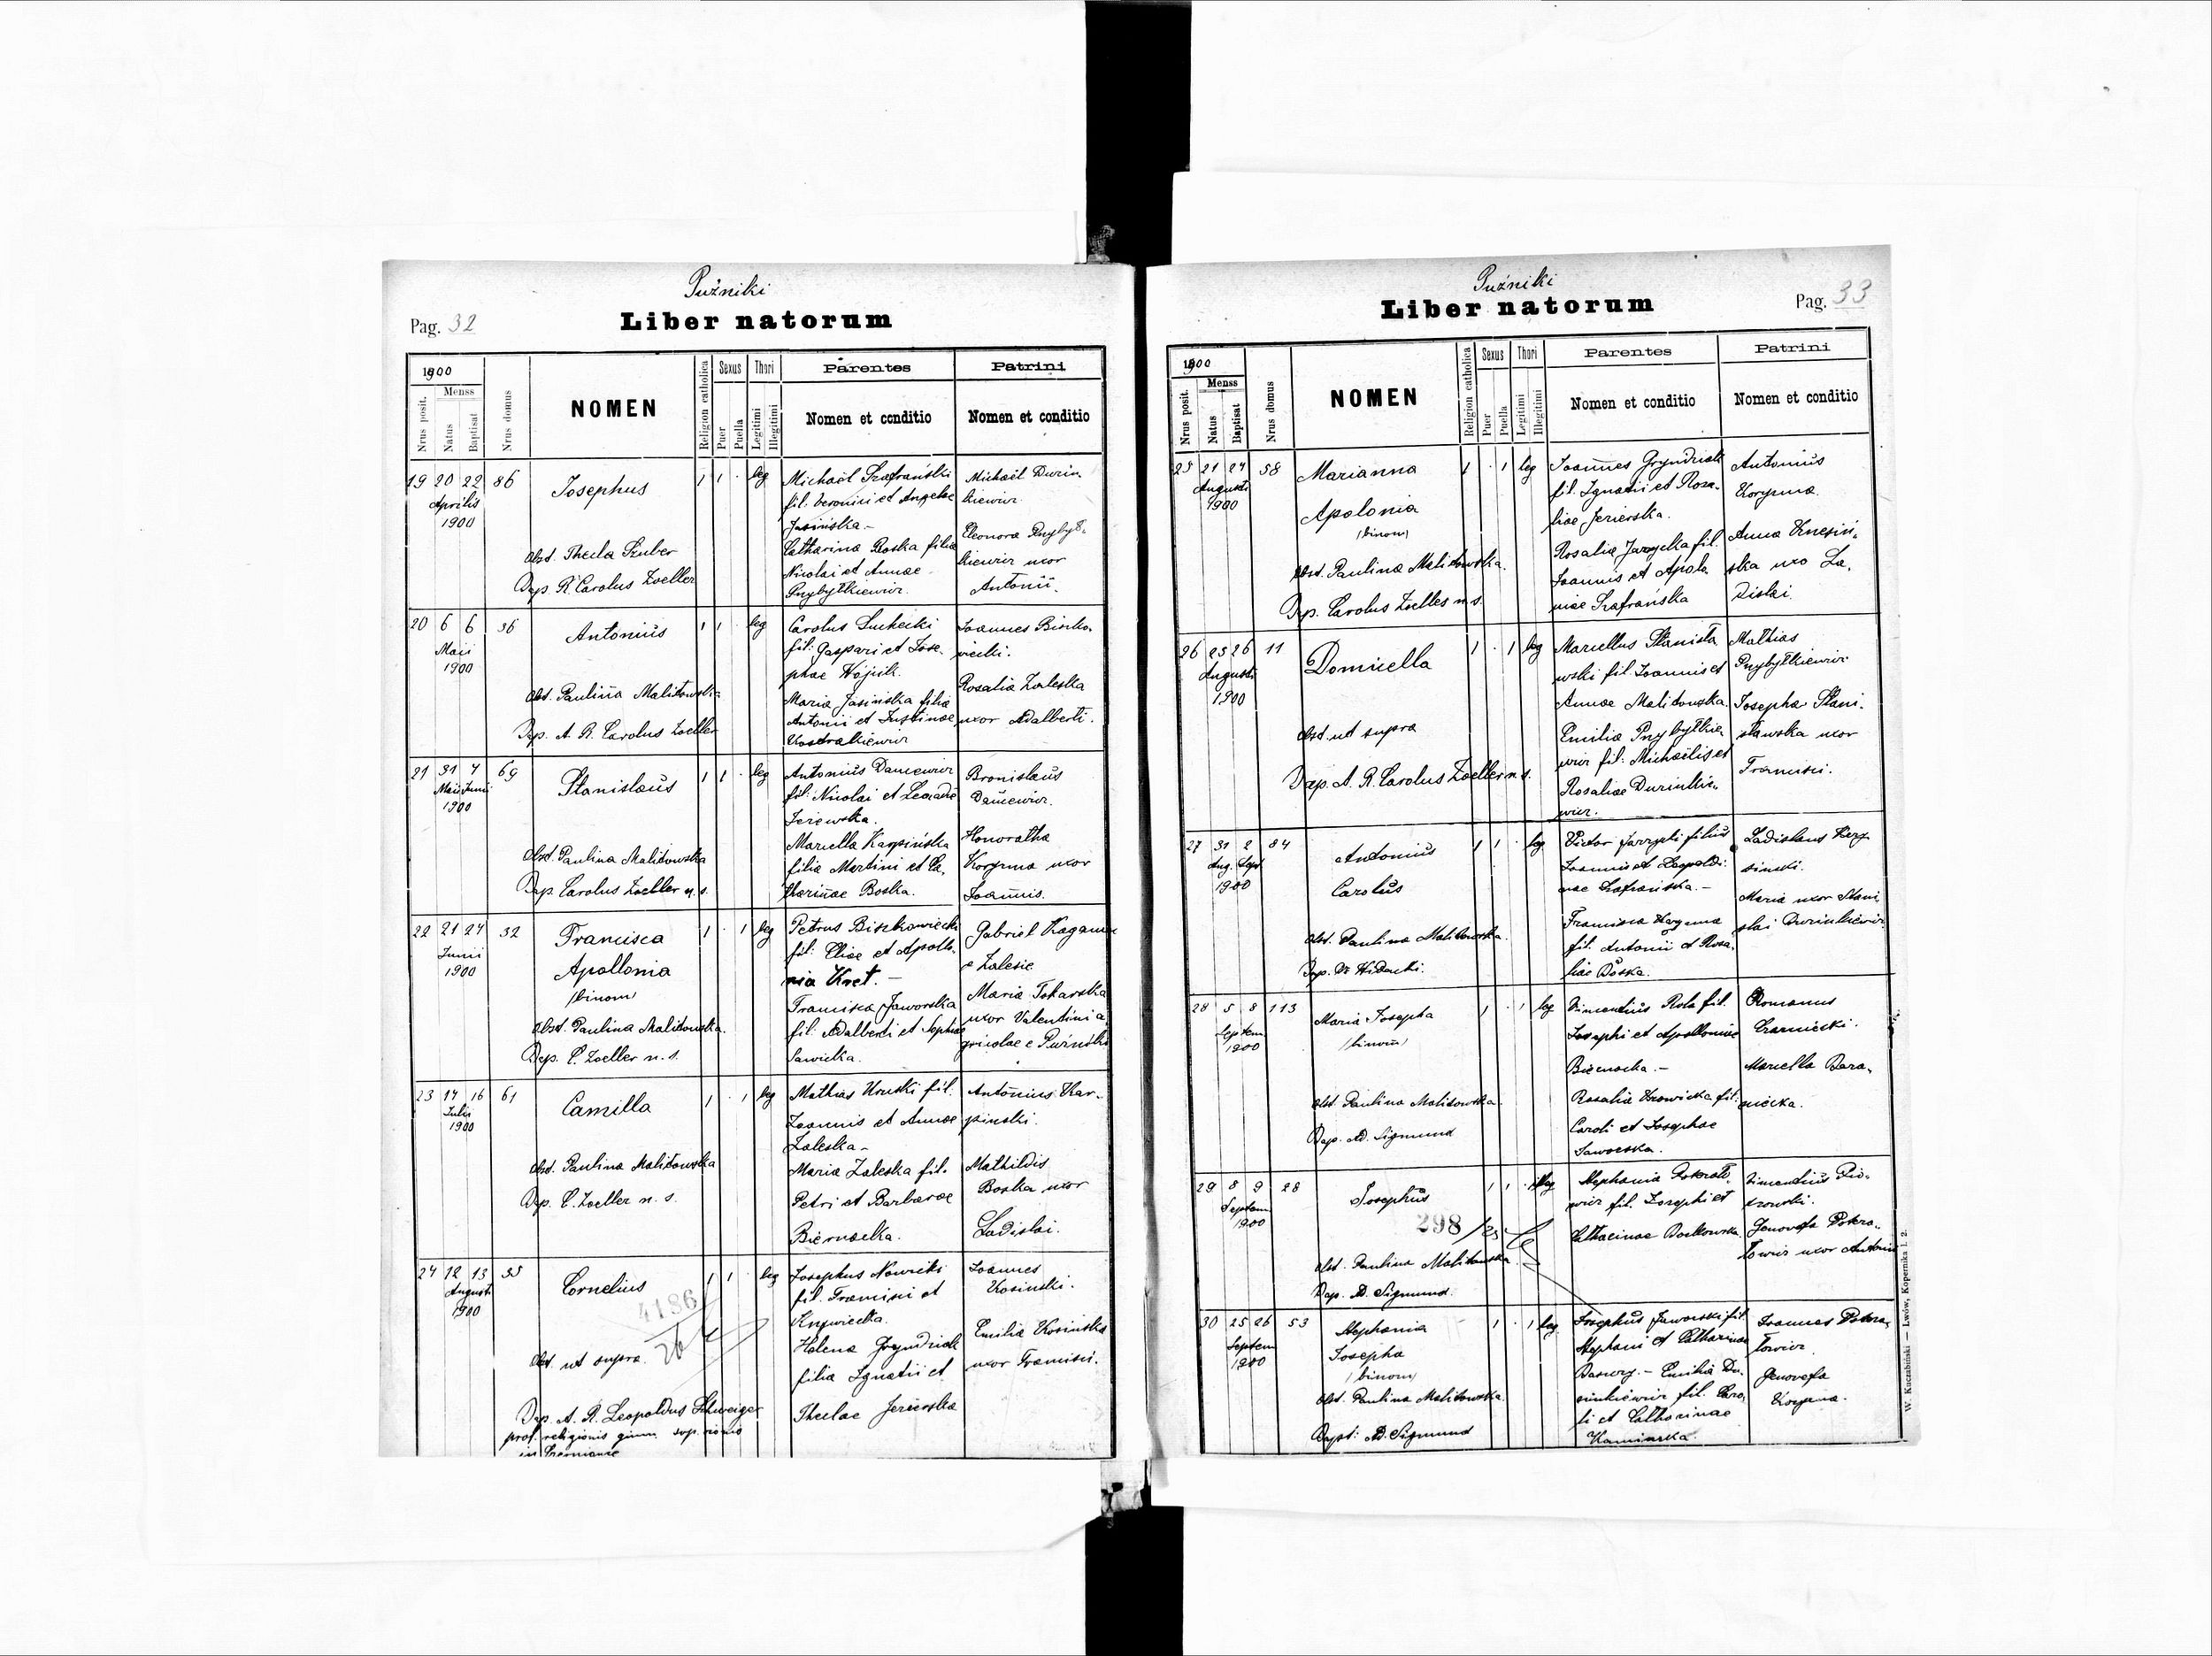 Puźniki
Pag. 32
Liber natorum
1900
Nrus posit.
Menss
Natus
Baptisat
Nrus domus
NOMEN
Religion catholica
Sexus
Puer
Puella
Thori
Legitimi
Illegitimi
Parentes
Nomen et conditio
Patrini
Nomen et conditio
19 20 22 86
Aprilis
1900
Josephus
1 1 · leg
Obst. Thecla Szuber
Bap. R. Carolus Zoeller
Michael Szafrański
fil. et Angelae
Jasińska -
Catharina Boska filia
Nicolai et Annae
Przybyłkiewicz.
Michael Durin
kiewicz
Eleonora Przybył
kiewicz uxor
Antonii.
20 6 6 36
Maii
1900
Antonius
1 1 · leg
Obst. Paulina Malitowska
Bap. A. R. Carolus Zoeller
Carolus Suchecki
fil: Gaspari et Jose-
phae Wójcik.
Maria Jasińska filia
Antonii et Justinae
Joannes Biszko-
wiecki.
Rosalia Zaleska
uxor Adalberti.
21 31 4 69
Maii Junii
1900
Stanislaus
1 1 · leg
Obst. Paulina Malitowska
Bap. Carolus Zoeller n. s.
Antonius Dancewicz
fil: Nicolai et
Marcella Karpińska
filia Martini et Ca-
tharinae Boska.
Bronislaus
Dancewicz.
Honoratha
Koryzma uxor
Joannis.
22 21 24 32
Junii
1900
Francisca
Apollonia
/binom/
1 · 1 leg
Obst. Paulina Malitowska.
Bap. C. Zoeller n. s.
Petrus Biszkowiecki
fil: Eliae et Apollo-
nia Knet. -
Francisca Jaworska
fil: Adalberti et Sophiae
Sawicka.
Gabriel
e Zalesie
Maria Tokarska
uxor Valentini a
gricolae e Puźniki
23 14 16 61
Julii
1900
Camilla
1 · 1 leg
Obst. Paulina Malitowska
Bap. C. Zoeller n. s.
Mathias Kruski fil:
Joannis et Annae
Zaleska -
Maria Zaleska fil.
Petri et Barbarae
Biernacka.
Antonius Kar-
pinski.
Mathildis
Boska uxor
Ladislai.
24 12 13
Augusti
1900
Cornelius
1 1 · leg
4186
Obst. ut supra.
Bap. A. R. Leopoldus Schweiger
prof. religionis
Josephus Nowicki
fil. Francisci et
Krzywiecka.
Helena Gryndziak
filia Ignatii et
Theclae Jezierska
Joannes
Kosinski.
Emilia Kosinska
uxor Francisci.
Puźniki
Liber natorum
Pag. 33
1900
Nrus posit.
Menss
Natus
Baptisat
Nrus domus
NOMEN
Religion catholica
Sexus
Puer
Puella
Thori
Legitimi
Illegitimi
Parentes
Nomen et conditio
Patrini
Nomen et conditio
25 21 24 58
Augusti
1900
Marianna
Apolonia
/binom/
1 · 1 leg
Obst. Paulina Malitowska.
Bap. Carolus Zoeller n. s.
Joannes Gryndziak
fil. Ignatii et Rosa-
liae Jezierska.
Rosalia Jarzycka fil.
Joannis et Apolo
niae Szafrańska
Antonius
Koryzma.
Anna
ska uxo La-
dislai.
26 25 26 11
Augusti
1900
Domicella
1 · 1 leg
Obst. ut supra
Bap. A. R. Carolus Zoeller n. s.
Marcellus Stanisła
wski fil. Joannis et
Annae Malitowska.
Emilia Przybyłkie
wicz fil: Michaëlis et
Rosaliae Durinkie-
wicz.
Mathias
Przybyłkiewicz
Josepha Stani-
sławska uxor
Francisci.
27 31 2 84
Aug. Sept
1900
Antonius
Carolus
1 1 · leg
Obst. Paulina Malitowska.
Victor Jarzycki filius
Joannis et Leopoldi-
nae Szafrańska. -
Francisca Koryzma
fil. Antonii et Rosa-
liae Boska.
Ladislaus
Maria uxor Stani
slai Durinkiewicz.
28 5 8 113
Septem
1900
Maria Josepha
/binom/
1 · 1 leg
Obst. Paulina Malitowska
Bap. Ad. Sigmund
Vincentius Rola fil.
Josephi et Apolloniae
Biernacka. -
Rosalia Krowicka fil:
Caroli et Josephae
Jaworska.
Romanus
Czarniecki.
Marcella Bara-
niecka.
29 8 9 28
Septem
1900
Josephus
298
1 1 · illeg
Obst. Paulina Malitowska
Bap. A. Sigmund.
Stephania Pokrato-
wicz fil. Josephi et
Catharinae
Vincentius Pio-
trowski.
Genovefa Pokra-
towicz uxor Antonii
30 25 26 53
Septem
1900
Stephania
Josepha
/binom/
1 · 1 leg
Obst. Paulina Malitowska.
Bapt: Ad. Sigmund
Josephus Jaworski fil.
Stephani et Catharinae
Emilia Du-
rinkiewicz fil. Caro-
li et Catharinae
Joannes Pokra-
towicz.
Genovefa
Koryzma.
W. Kuczabiński — Lwów, Kopernika l. 2.